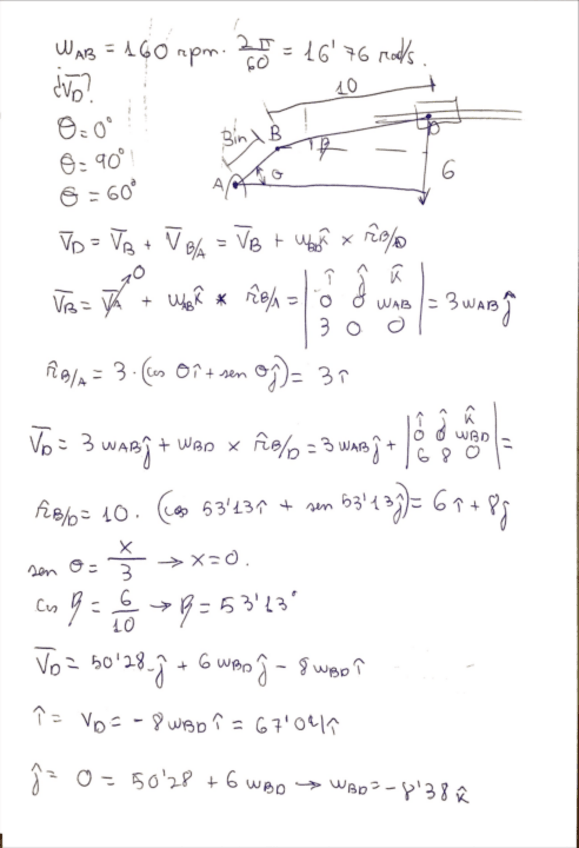 ω_AB = 160 rpm · 2π/60 = 16'76 rad/s.
¿V̄_D?
θ = 0°
θ = 90°
θ = 60°
10
3in
B
β
D
6
A
θ
V̄_D = V̄_B + V̄_B/A = V̄_B + ω_BD k̂ × r̂_B/D
V̄_B = V̄_A→0 + ω_AB k̂ * r̂_B/A = |î ĵ k̂; 0 0 ω_AB; 3 0 0| = 3ω_AB ĵ
r̂_B/A = 3·(cos 0î + sen 0ĵ) = 3î
V̄_D = 3ω_AB ĵ + ω_BD × r̂_B/D = 3ω_AB ĵ + |î ĵ k̂; 0 0 ω_BD; 6 8 0| =
r̂_B/D = 10 · (cos 53'13î + sen 53'13ĵ) = 6î + 8ĵ
sen θ = x/3 → x = 0.
cos β = 6/10 → β = 53'13°
V̄_D = 50'28 ĵ + 6ω_BD ĵ - 8ω_BD î
î = V_D = -8ω_BD î = 67'04 î
ĵ = 0 = 50'28 + 6ω_BD → ω_BD = -8'38 k̂